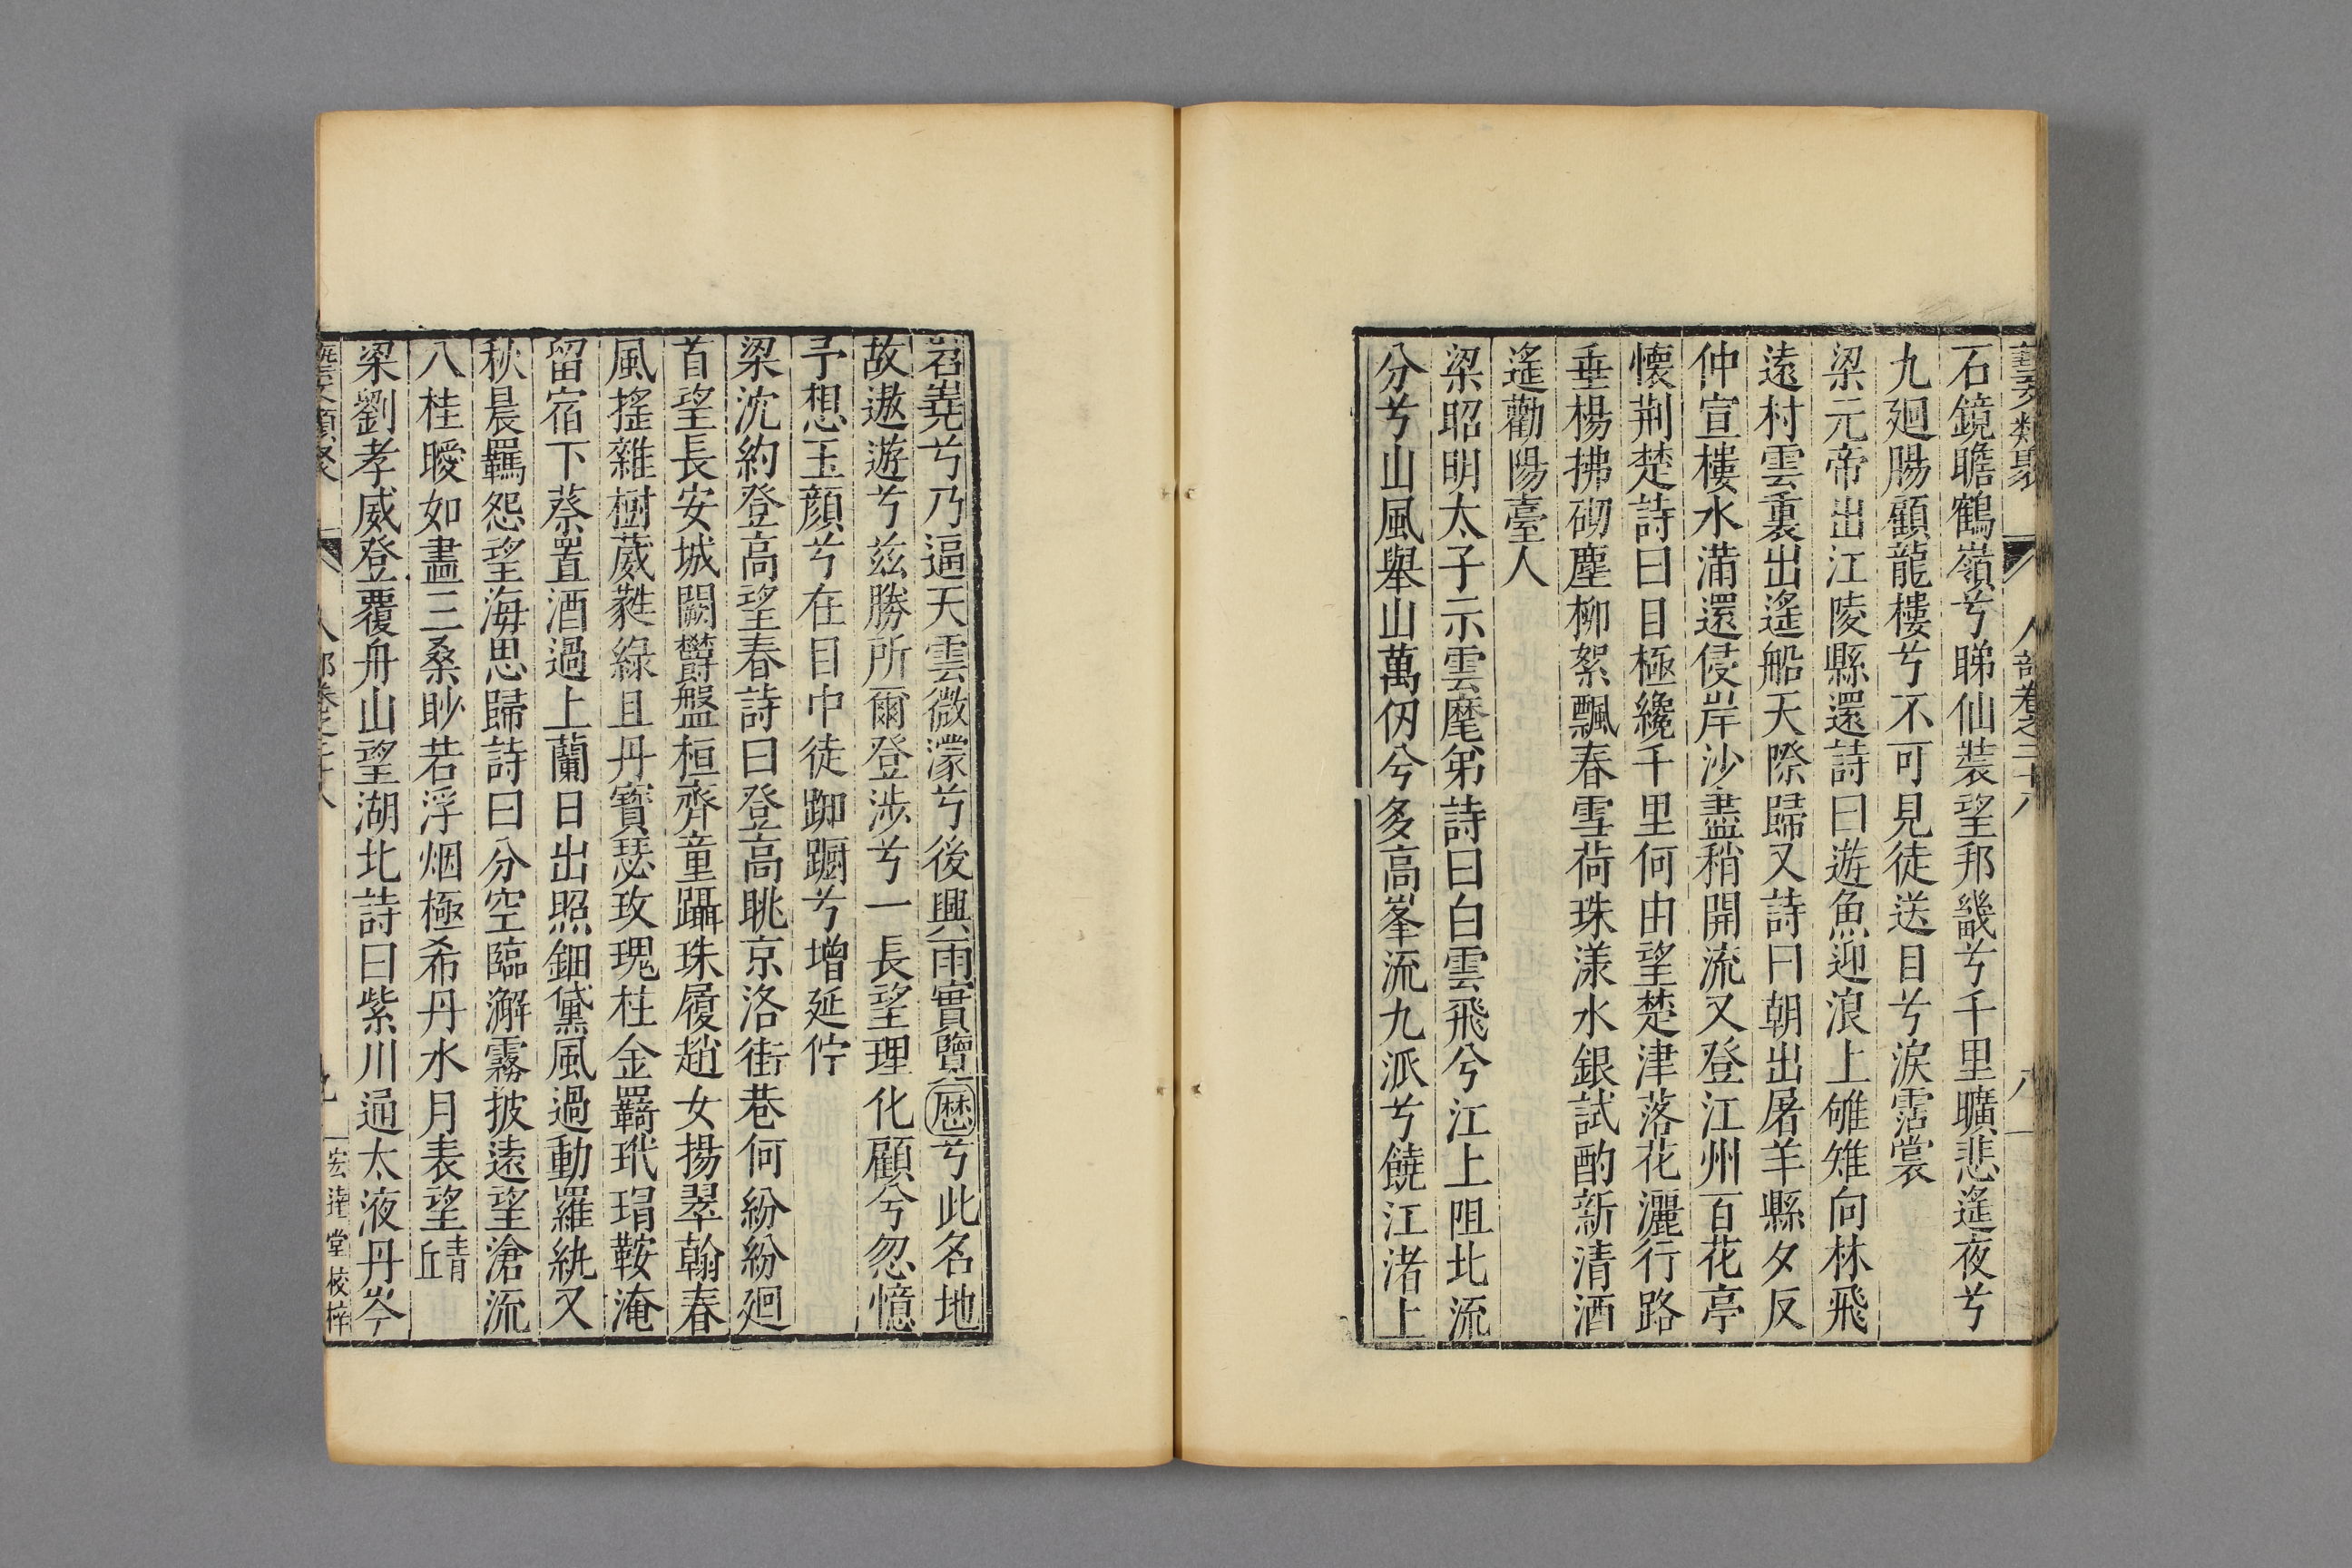 藝文類聚 人部卷之二十八 八
石鏡瞻鶴嶺兮睇仙裝望邦畿兮千里曠悲遙夜兮
九廻腸顧龍樓兮不可見徒送目兮淚霑裳
梁元帝出江陵縣還詩曰遊魚迎浪上雊雉向林飛
遠村雲裏出遙船天際歸又詩曰朝出屠羊縣夕反
仲宣樓水滿還侵岸沙盡稍開流又登江州百花亭
懷荆楚詩曰目極纔千里何由望楚津落花灑行路
垂楊拂砌塵柳絮飄春雪荷珠漾水銀試酌新清酒
遙勸陽臺人
梁昭明太子示雲麾弟詩曰白雲飛兮江上阻北流
分兮山風舉山萬仞兮多高峯流九派兮饒江渚上
岧嶤兮乃逼天雲微濛兮後興雨實覽歴兮此名地
故遨遊兮茲勝所爾登涉兮一長望理化顧兮忽憶
予想玉顏兮在目中徒踟躕兮增延佇
梁沈約登高望春詩曰登高眺京洛街巷何紛紛廻
首望長安城闕鬱盤桓齊童躡珠履趙女揚翠翰春
風搖雜樹葳蕤綠且丹寶瑟玫瑰柱金羈玳瑁鞍淹
留宿下蔡置酒過上蘭日出照鈿黛風過動羅紈又
秋晨羈怨望海思歸詩曰分空臨澥霧披遠望滄流
八桂曖如畫三桑眇若浮烟極希丹水月表望靖丘
梁劉孝威登覆舟山望湖北詩曰紫川通太液丹岑
藝文類聚 人部卷之二十八 九 宏達堂校梓